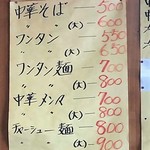 中華そば 500
〃 (大) 600
ワンタン 550
〃 (大) 650
ワンタン麺 700
〃 (大) 800
中華メンマ 700
〃 (大) 800
チャーシュー麺 800
〃 (大) 900